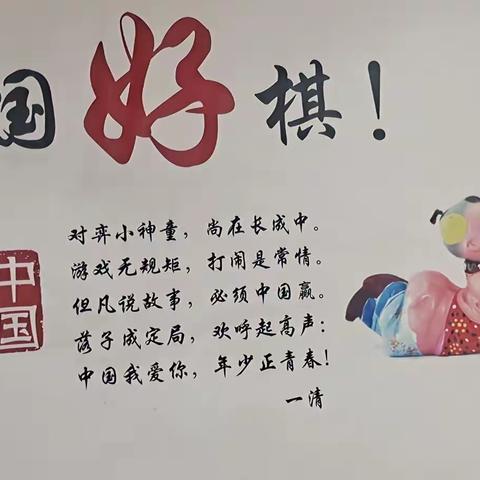 国好棋！
对弈小神童，尚在长成中。
游戏无规矩，打闹是常情。
但凡说故事，必须中国赢。
落子成定局，欢呼起高声：
中国我爱你，年少正青春！
一清
中国